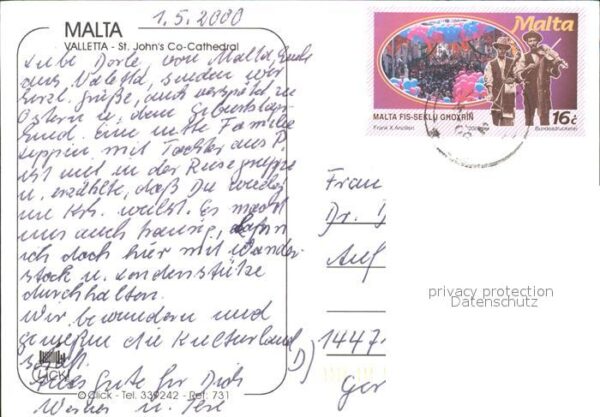 1.5.2000
MALTA
VALLETTA - St. John's Co-Cathedral
Liebe Dorle, von Malta,
aus Valetta, senden wir
herzl. Grüße, auch verspätet zu
Ostern u. dem Geburtstag
Eine nette Familie
mit Tochter aus P.
ist mit in der Reisegruppe
u. erzählte, daß Du wieder
im Krh. weilst. Es macht
uns auch traurig,
ich doch hier mit Wander-
stock u. Lendenstütze
durchhalten.
Wir bewundern und
genießen die Kulturland-
schaft.
Alles Gute für Dich
Werner u.
CLICK
© Click - Tel. 339242 - Ref: 731
Malta
MALTA FIS-SEKLU GĦOXRIN
16c
Frank X Ancilleri
Bundesdruckerei
Frau
Dr.
Auf
privacy protection
Datenschutz
D) 1447
Ger